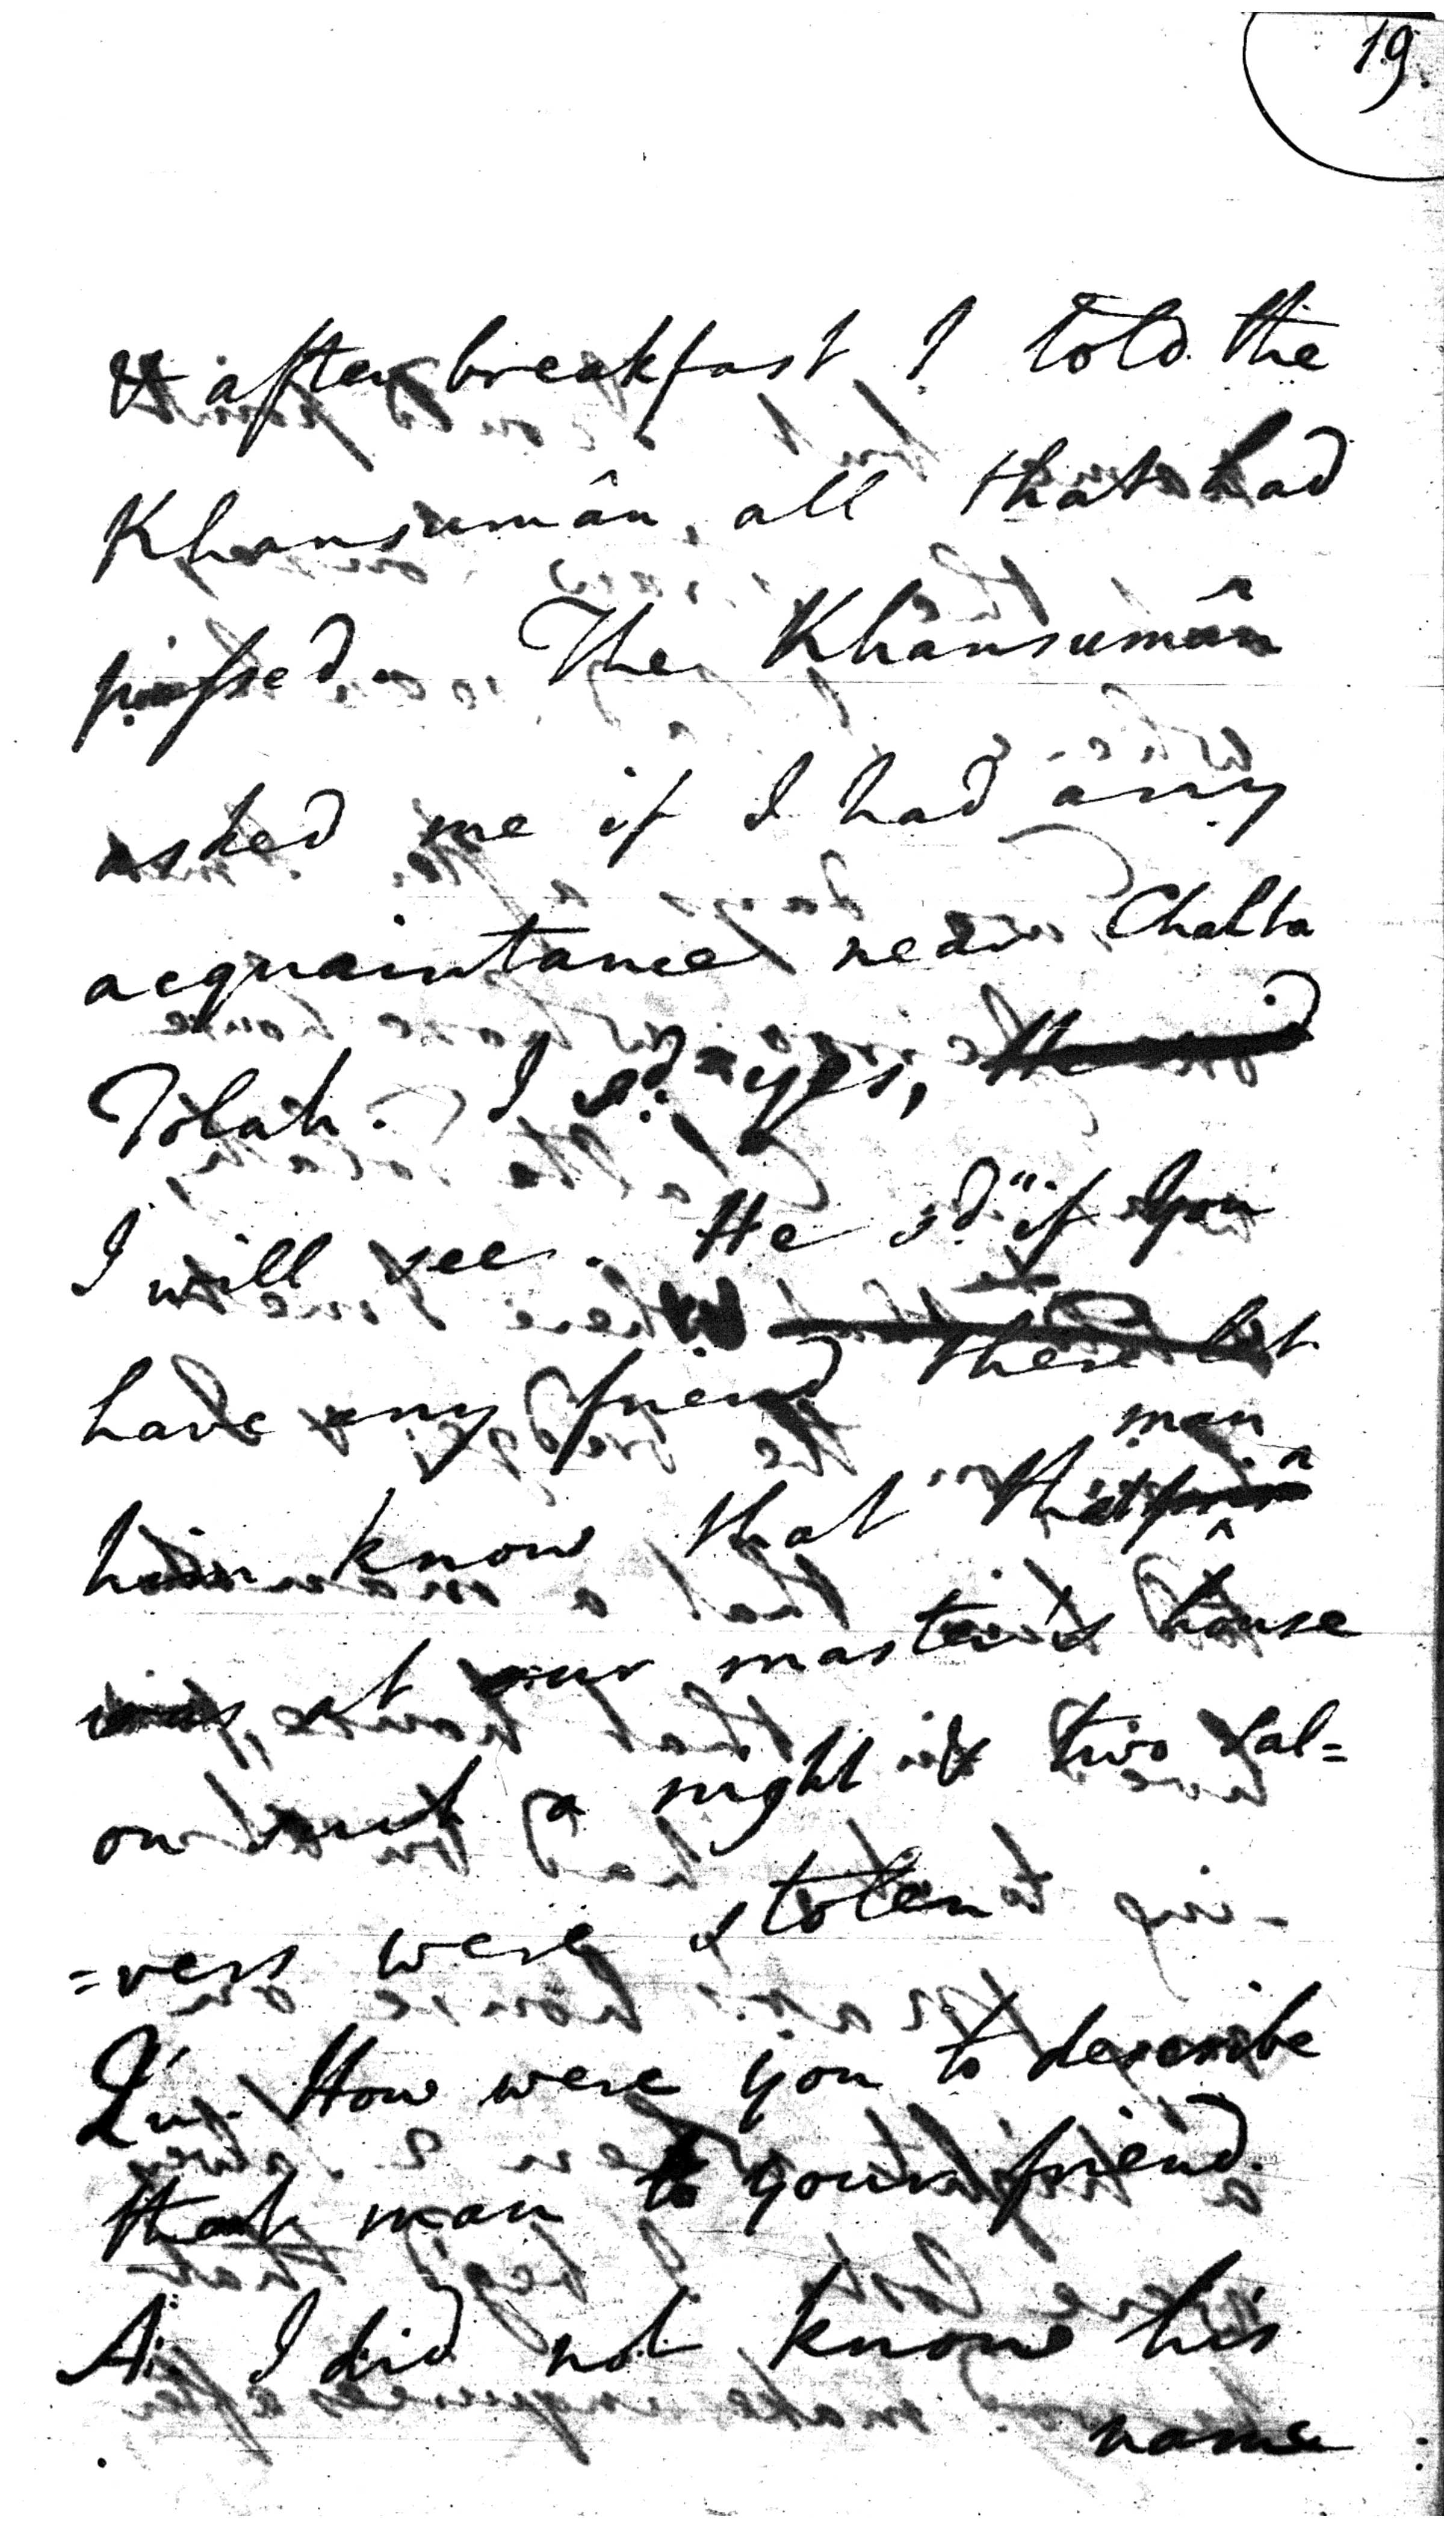 19.
& after breakfast I told the
Khansumân, all that had
passed. The Khânsumân
asked me if I had any
acquaintance near Chalta
Tolah. I sd. yes,
I will see. He sd. "if you
have any friend there let
him know that that man
was, at our master's house
on such a night & two sal=
=vers were stolen
Qu. How were you to describe
that man to your friend.
A. I did not know his
name